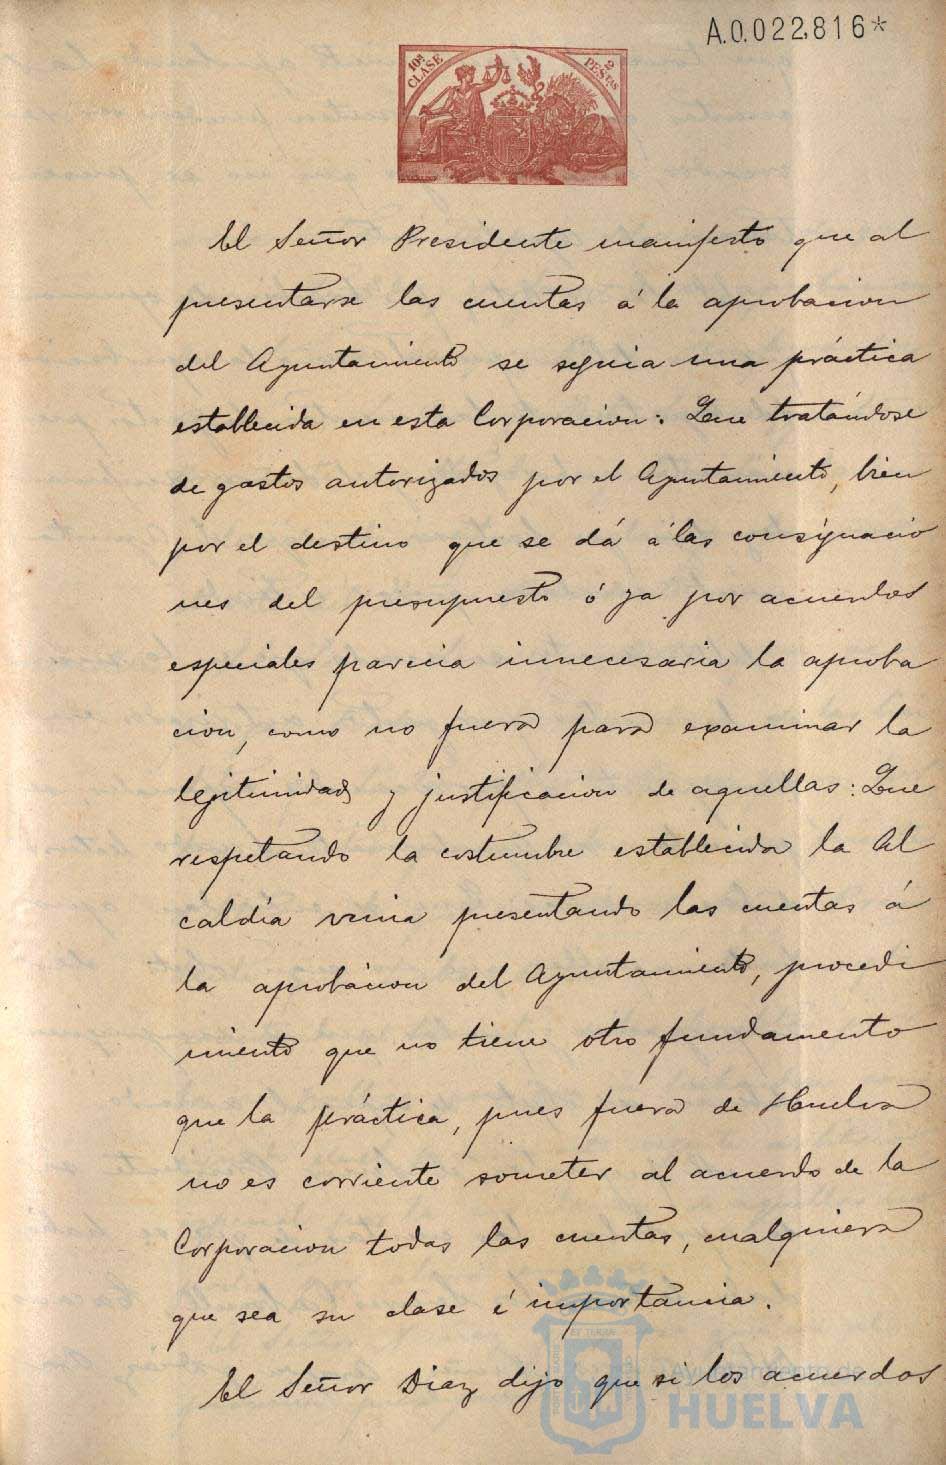 A.0.022,816*
10ª CLASE
2 PESTAS
El Señor Presidente manifesto que al
presentarse las cuentas á la aprobacion
del Ayuntamiento se seguia una práctica
establecida en esta Corporacion: Que tratándose
de gastos autorizados por el Ayuntamiento, bien
por el destino que se dá á las consignacio
nes del presupuesto ó ya por acuerdos
especiales parecia innecesaria la aproba
cion, como no fuera para examinar la
legitimidad y justificacion de aquellas: Que
respetando la costumbre establecida la Al
caldía venia presentando las cuentas á
la aprobacion del Ayuntamiento, procedi
miento que no tiene otro fundamento
que la práctica, pues fuera de Huelva
no es corriente someter al acuerdo de la
Corporacion todas las cuentas, cualquiera
que sea su clase é importancia.
El Señor Diaz dijo que si los acuerdos
Ayuntamiento de
HUELVA